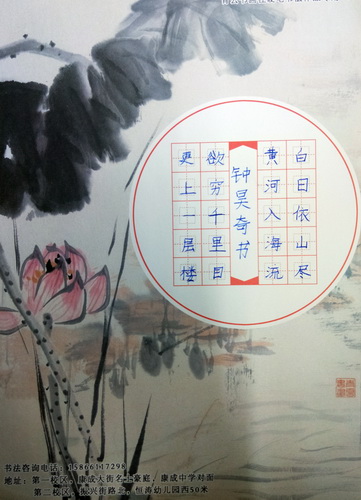 白日依山尽
黄河入海流
钟昊奇书
欲穷千里目
更上一层楼
书法咨询电话：15866117298
地址：第一校区，康成大街名士豪庭，康成中学对面
第二校区，振兴街路北，恒涛幼儿园西50米